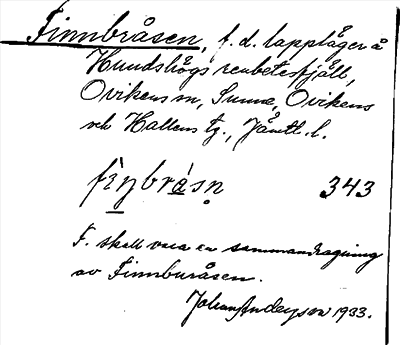 Finnbråsen, f. d. lappläger å
Hundshögs renbetesfjäll,
Ovikens sn, Sunne, Ovikens
och Hallens tg., Jämtl. l.
fìŋbrásn̥ 343
F. skall vara en sammandragning
av Finnburåsen.
Johan Andersson 1933.